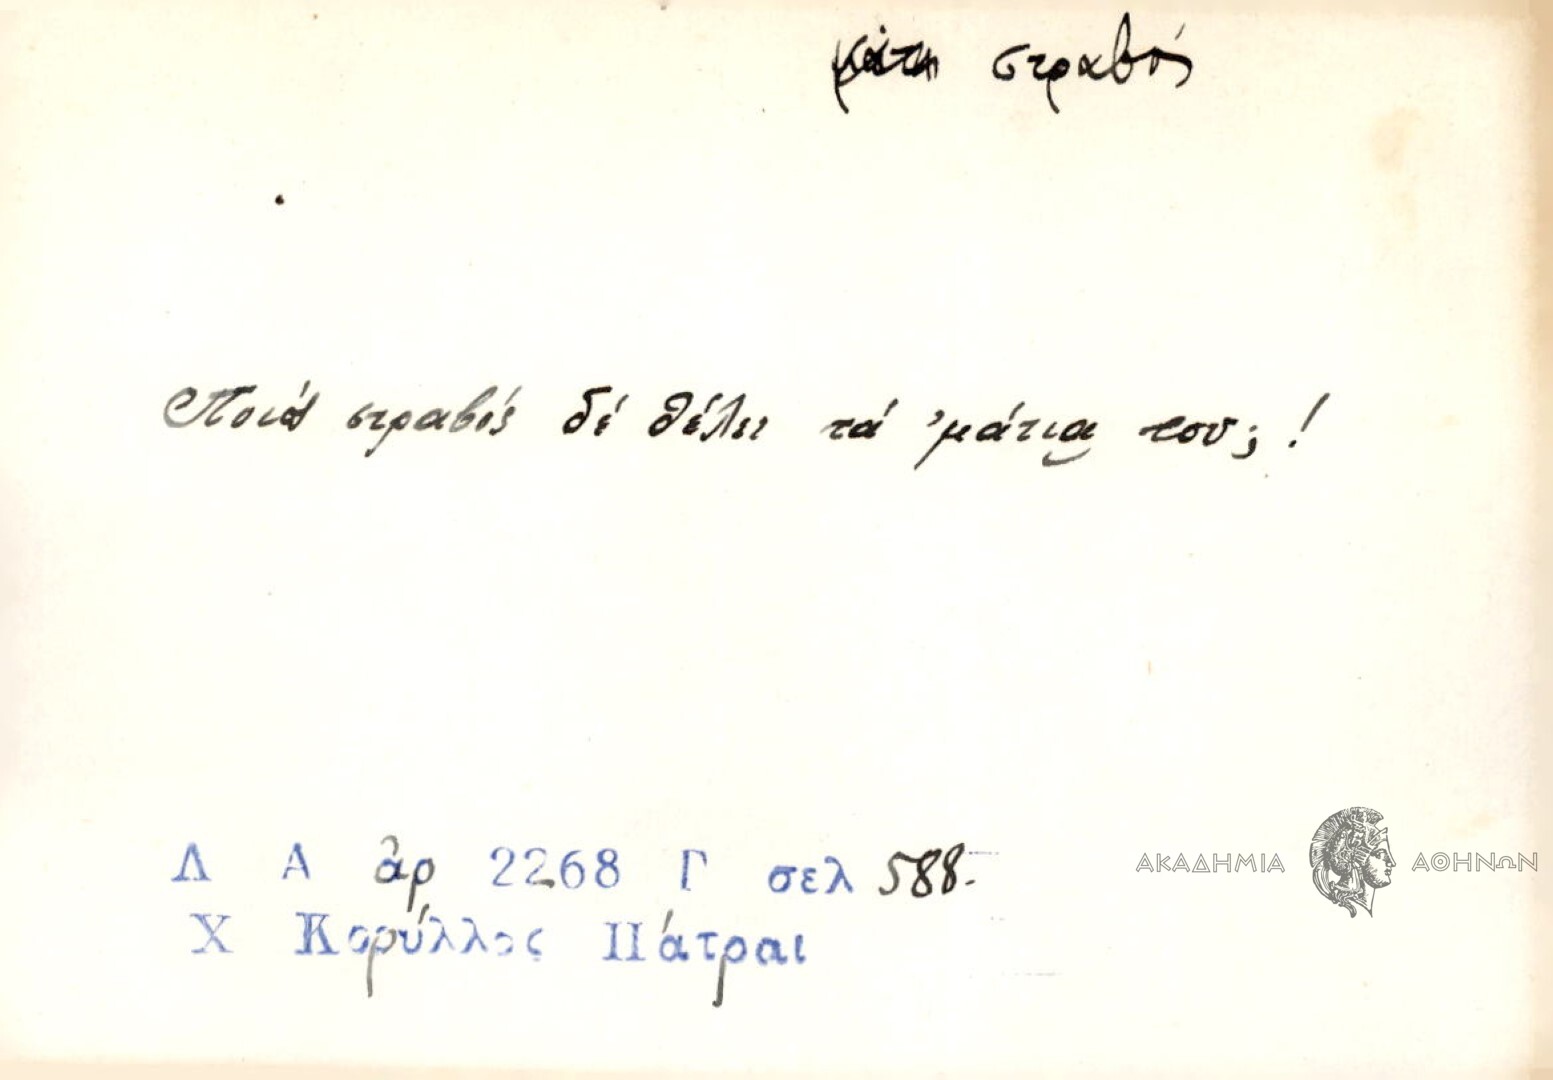 μάτι στραβός
Ποιός στραβός δέ θέλει τά 'μάτια του; !
Λ Α ἀρ 2268 Γ σελ 588.
Χ Κορύλλος Πάτραι
ΑΚΑΔΗΜΙΑ ΑΘΗΝΩΝ